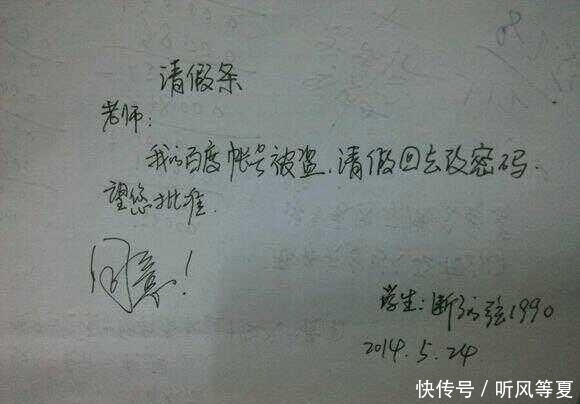 请假条
老师：
我的百度帐号被盗，请假回去改密码.
望您批准.
同意！
学生：断的弦1990
2014.5.24
快传号／听风等夏